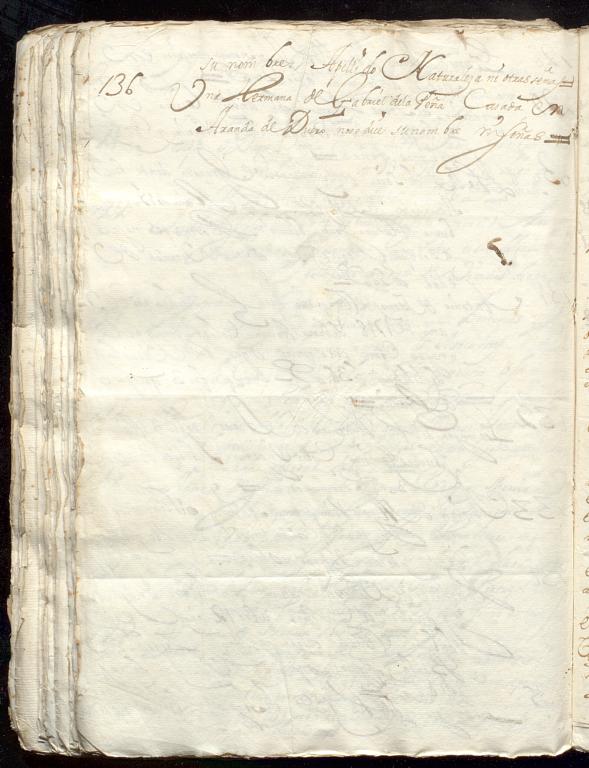 su nombre Apellido Naturaleza ni otras señas
136 Una hermana de Gabriel de la Peña Casada en
Aranda de Duero, no se dice su nombre ni señas